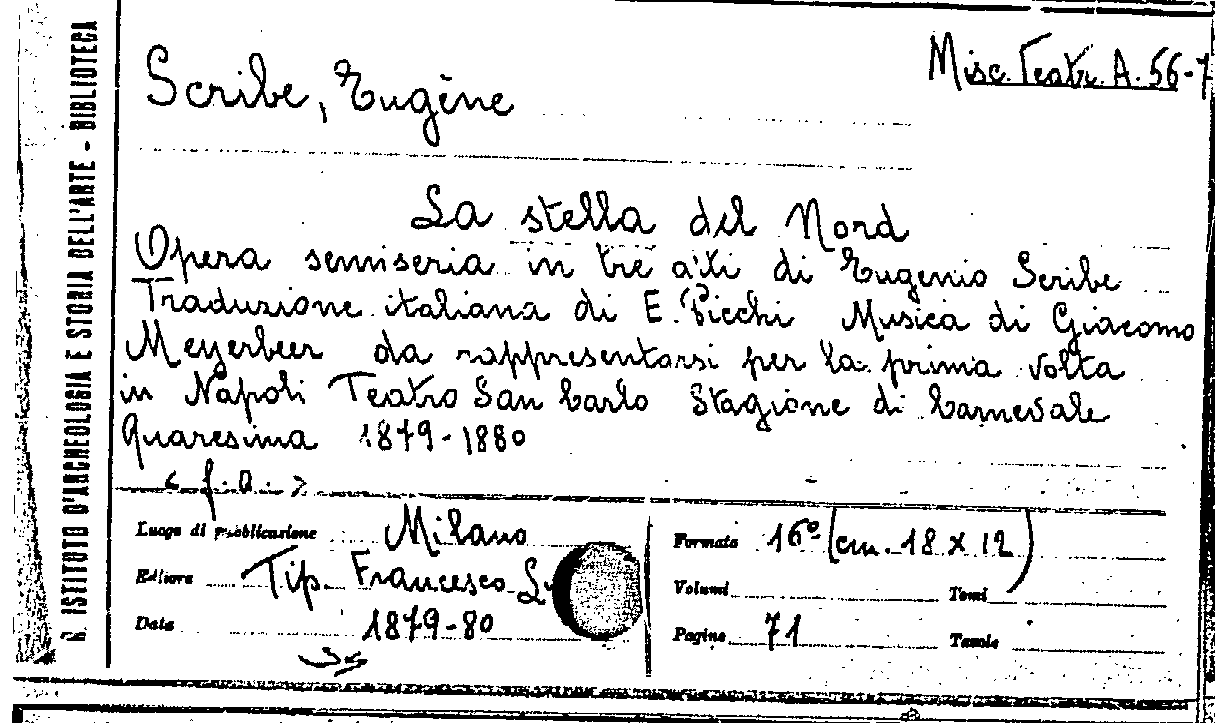 R. ISTITUTO D'ARCHEOLOGIA E STORIA DELL'ARTE - BIBLIOTECA
Misc. Teatr. A. 56-7
Scribe, Eugène
La stella del Nord
Opera semiseria in tre atti di Eugenio Scribe
Traduzione italiana di E. Picchi Musica di Giacomo
Meyerbeer da rappresentarsi per la prima volta
in Napoli Teatro San Carlo Stagione di Carnevale
Quaresima 1879-1880
< f.a. >
Luogo di pubblicazione Milano
Editore Tip. Francesco
Data 1879-80
Formato 16º (cm. 18 x 12)
Volumi Tomi
Pagine 71 Tavole